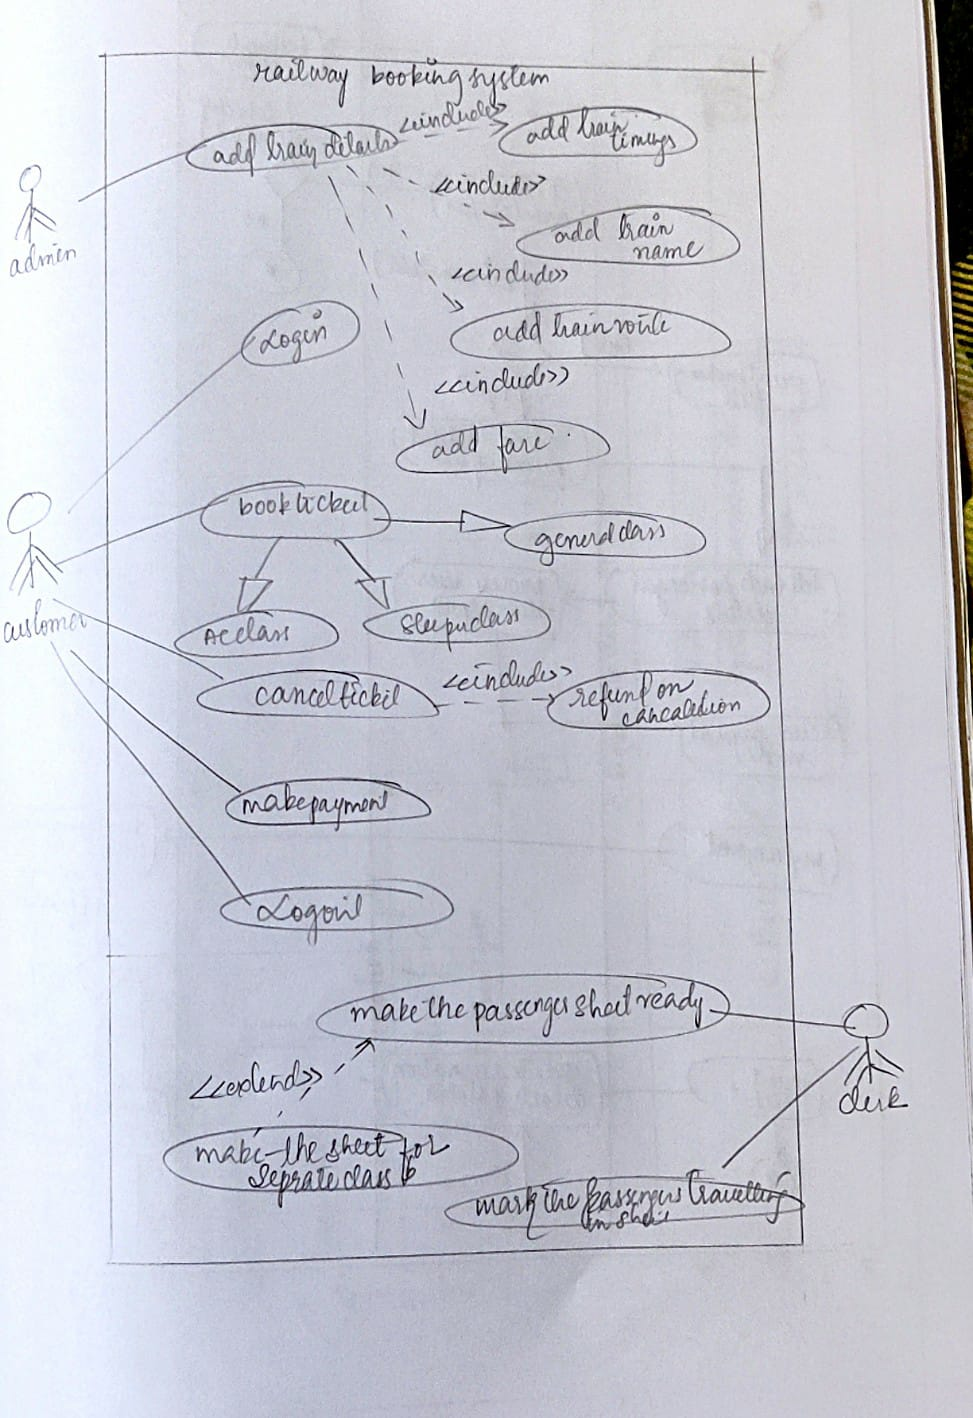 railway booking system
<<include>>
add train details
add train
timings
<<include>>
add train
name
admin
<<include>>
Login
add train route
<<include>>
add fare
book ticket
general class
customer
AC class
Sleeper class
cancel ticket
<<include>>
refund on
cancalation
make payment
Logout
make the passenger sheet ready
<<extend>>
clerk
make the sheet for
Seprate class
mark the passengers travelling
in sheet